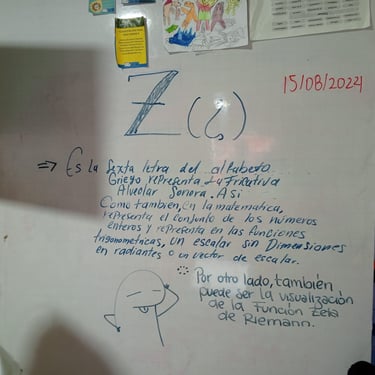 15/08/2024
Z (ζ)
⇒ Es la Sexta letra del alfabeto
Griego representa la Fricativa
Alveolar Sonora. Asi
Como también, en la matematica,
representa el conjunto de los números
enteros y representa en las funciones
trigonometricas, un escalar sin Dimensiones
en radiantes o un vector de escalar.
Por otro lado, también
puede ser la visualización
de la Función Zeta
de Riemann.